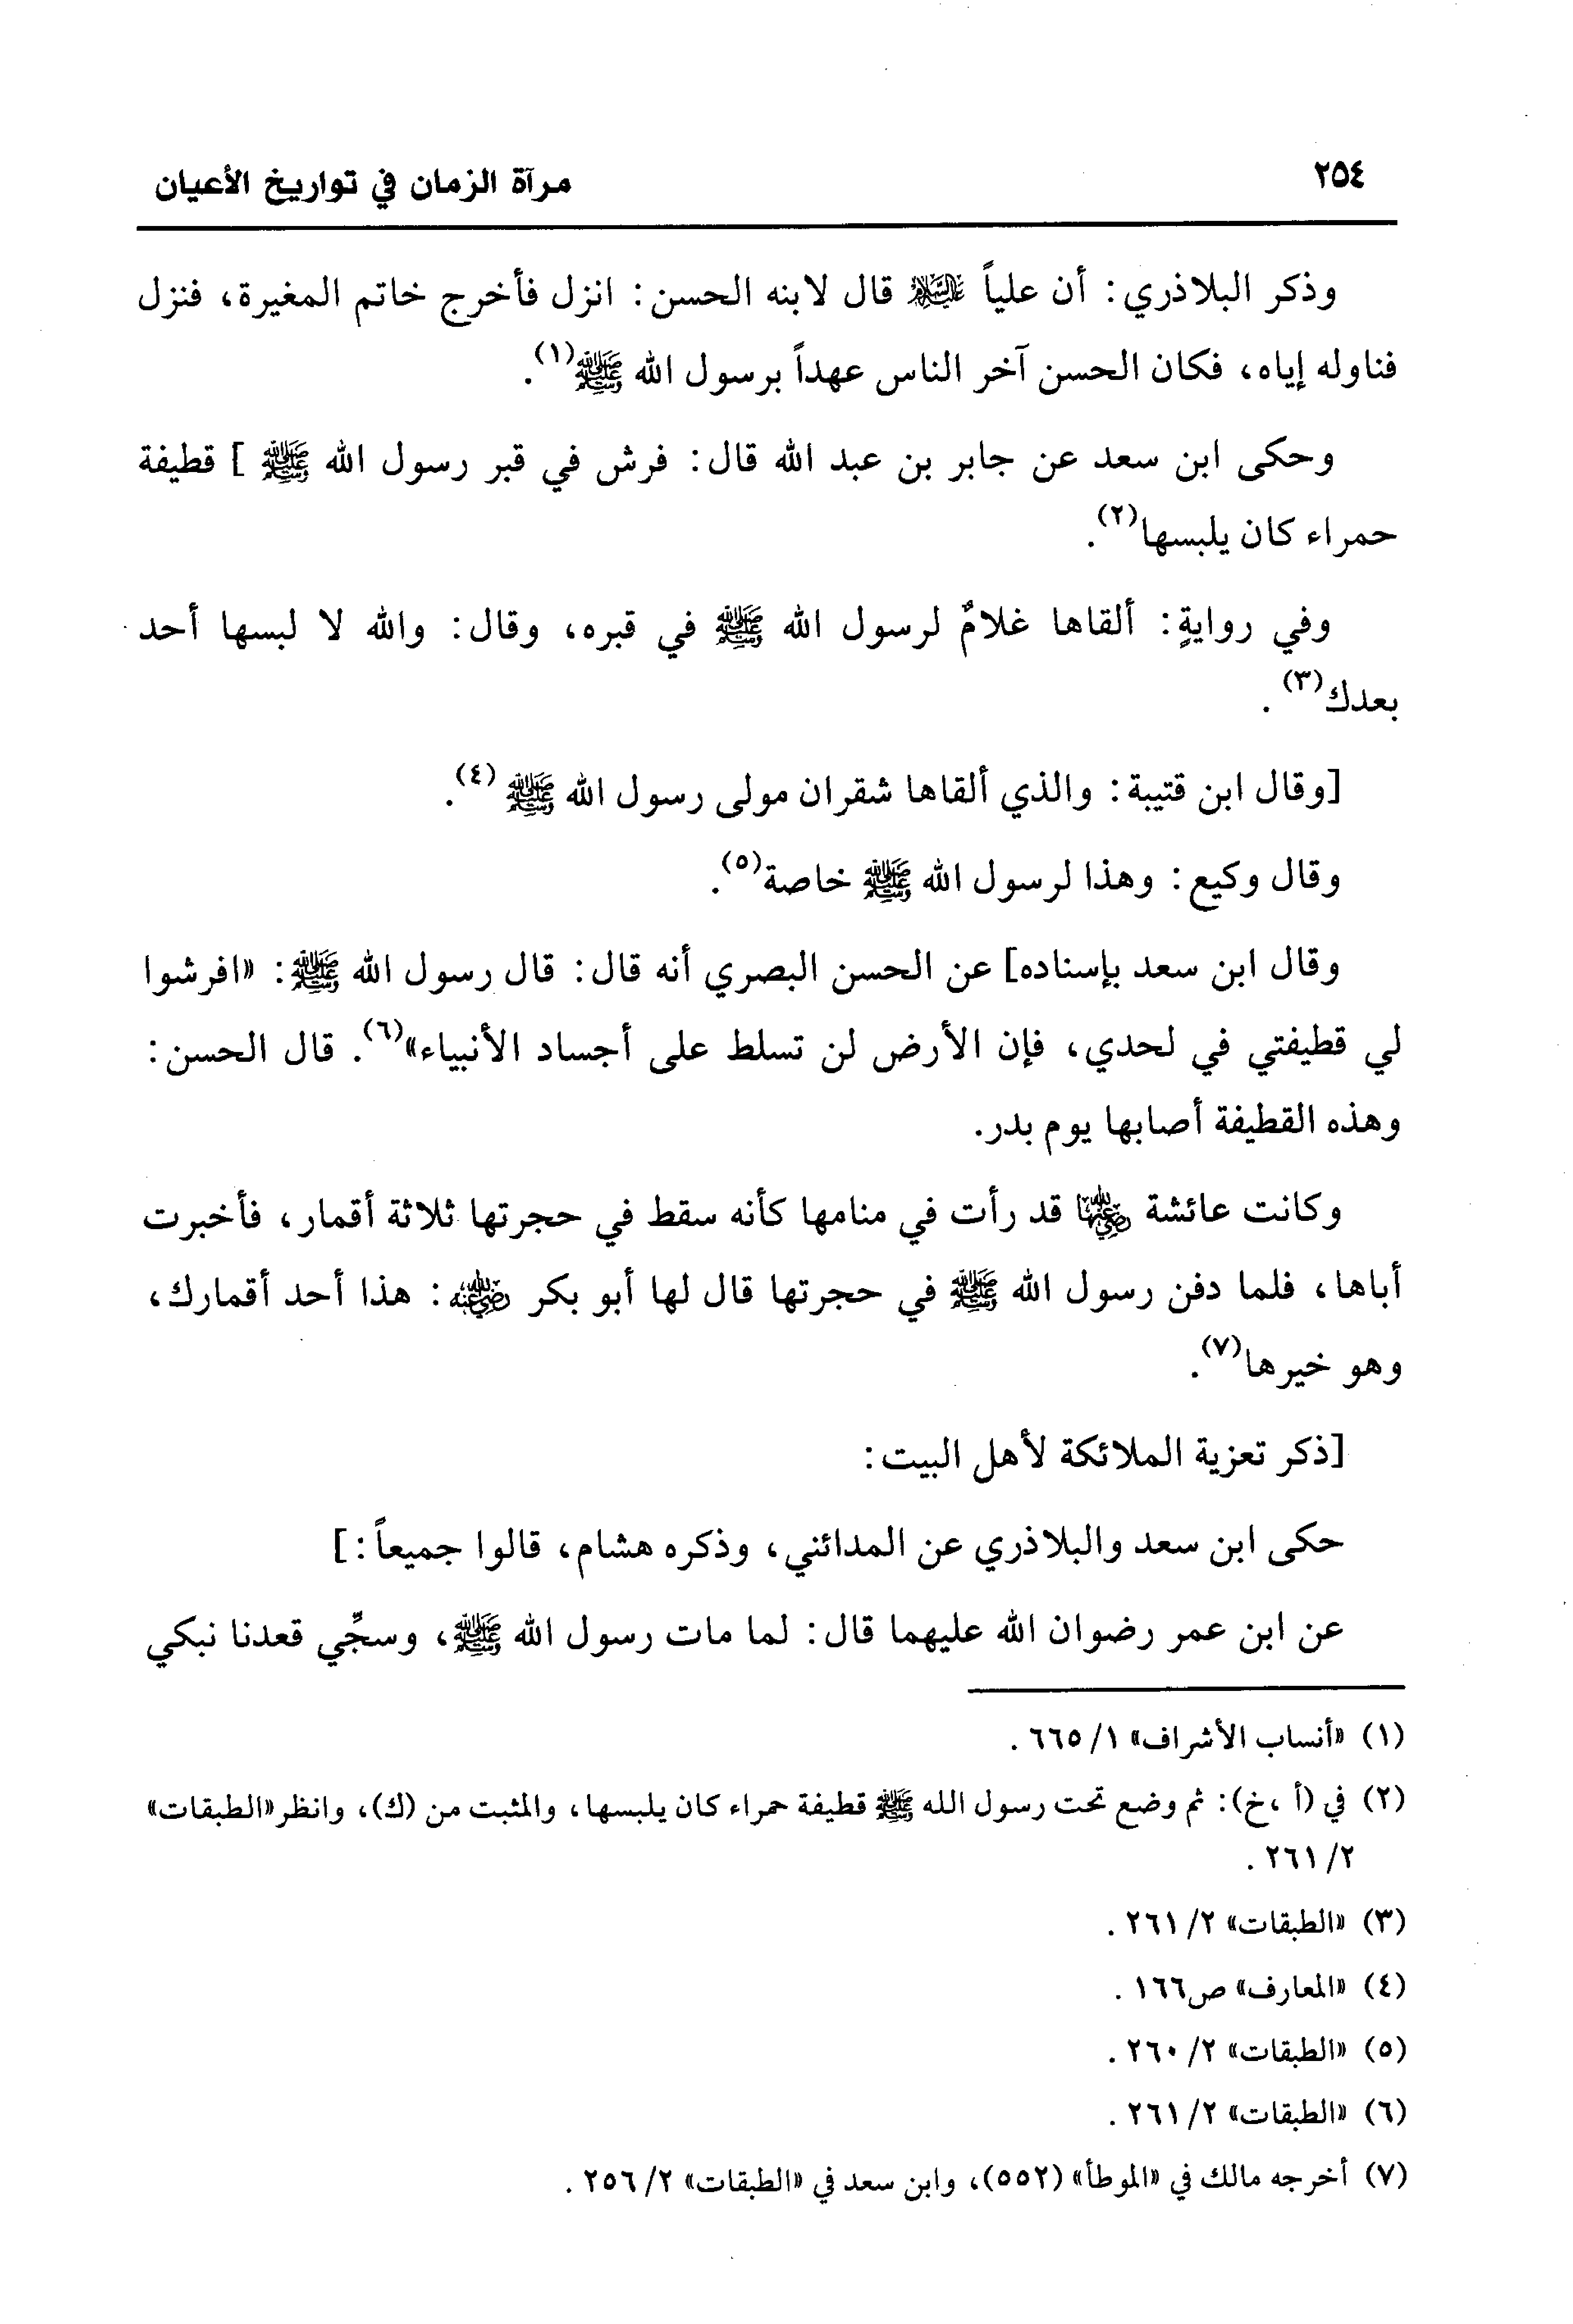 ٢٥٤
مرآة الزمان في تواريخ الأعيان
وذكر البلاذري: أن علياً عليه السلام قال لابنه الحسن: انزل فأخرج خاتم المغيرة، فنزل
فناوله إياه، فكان الحسن آخر الناس عهداً برسول الله ﷺ(١).
وحكى ابن سعد عن جابر بن عبد الله قال: فرش في قبر رسول الله ﷺ ] قطيفة
حمراء كان يلبسها(٢).
وفي روايةٍ: ألقاها غلامٌ لرسول الله ﷺ في قبره، وقال: والله لا لبسها أحد
بعدك(٣).
[وقال ابن قتيبة: والذي ألقاها شقران مولى رسول الله ﷺ (٤).
وقال وكيع: وهذا لرسول الله ﷺ خاصة(٥).
وقال ابن سعد بإسناده] عن الحسن البصري أنه قال: قال رسول الله ﷺ: «افرشوا
لي قطيفتي في لحدي، فإن الأرض لن تسلط على أجساد الأنبياء»(٦). قال الحسن:
وهذه القطيفة أصابها يوم بدر.
وكانت عائشة رضي الله عنها قد رأت في منامها كأنه سقط في حجرتها ثلاثة أقمار، فأخبرت
أباها، فلما دفن رسول الله ﷺ في حجرتها قال لها أبو بكر رضي الله عنه: هذا أحد أقمارك،
وهو خيرها(٧).
[ذكر تعزية الملائكة لأهل البيت:
حكى ابن سعد والبلاذري عن المدائني، وذكره هشام، قالوا جميعاً:]
عن ابن عمر رضوان الله عليهما قال: لما مات رسول الله ﷺ، وسجِّي قعدنا نبكي
(١) «أنساب الأشراف» ١/ ٦٦٥.
(٢) في (أ ،خ): ثم وضع تحت رسول الله ﷺ قطيفة حمراء كان يلبسها، والمثبت من (ك)، وانظر «الطبقات»
٢/ ٢٦١.
(٣) «الطبقات» ٢/ ٢٦١.
(٤) «المعارف» ص١٦٦.
(٥) «الطبقات» ٢/ ٢٦٠.
(٦) «الطبقات» ٢/ ٢٦١.
(٧) أخرجه مالك في «الموطأ» (٥٥٢)، وابن سعد في «الطبقات» ٢/ ٢٥٦.